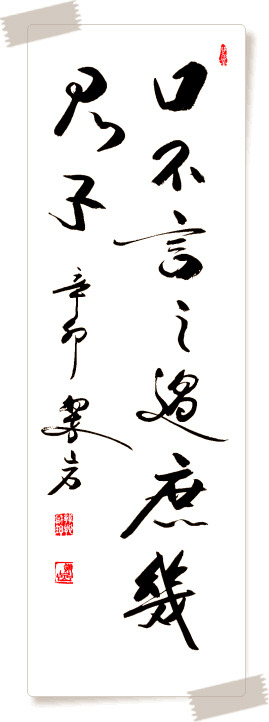 口不言之過庶幾
君子
辛卯 岩